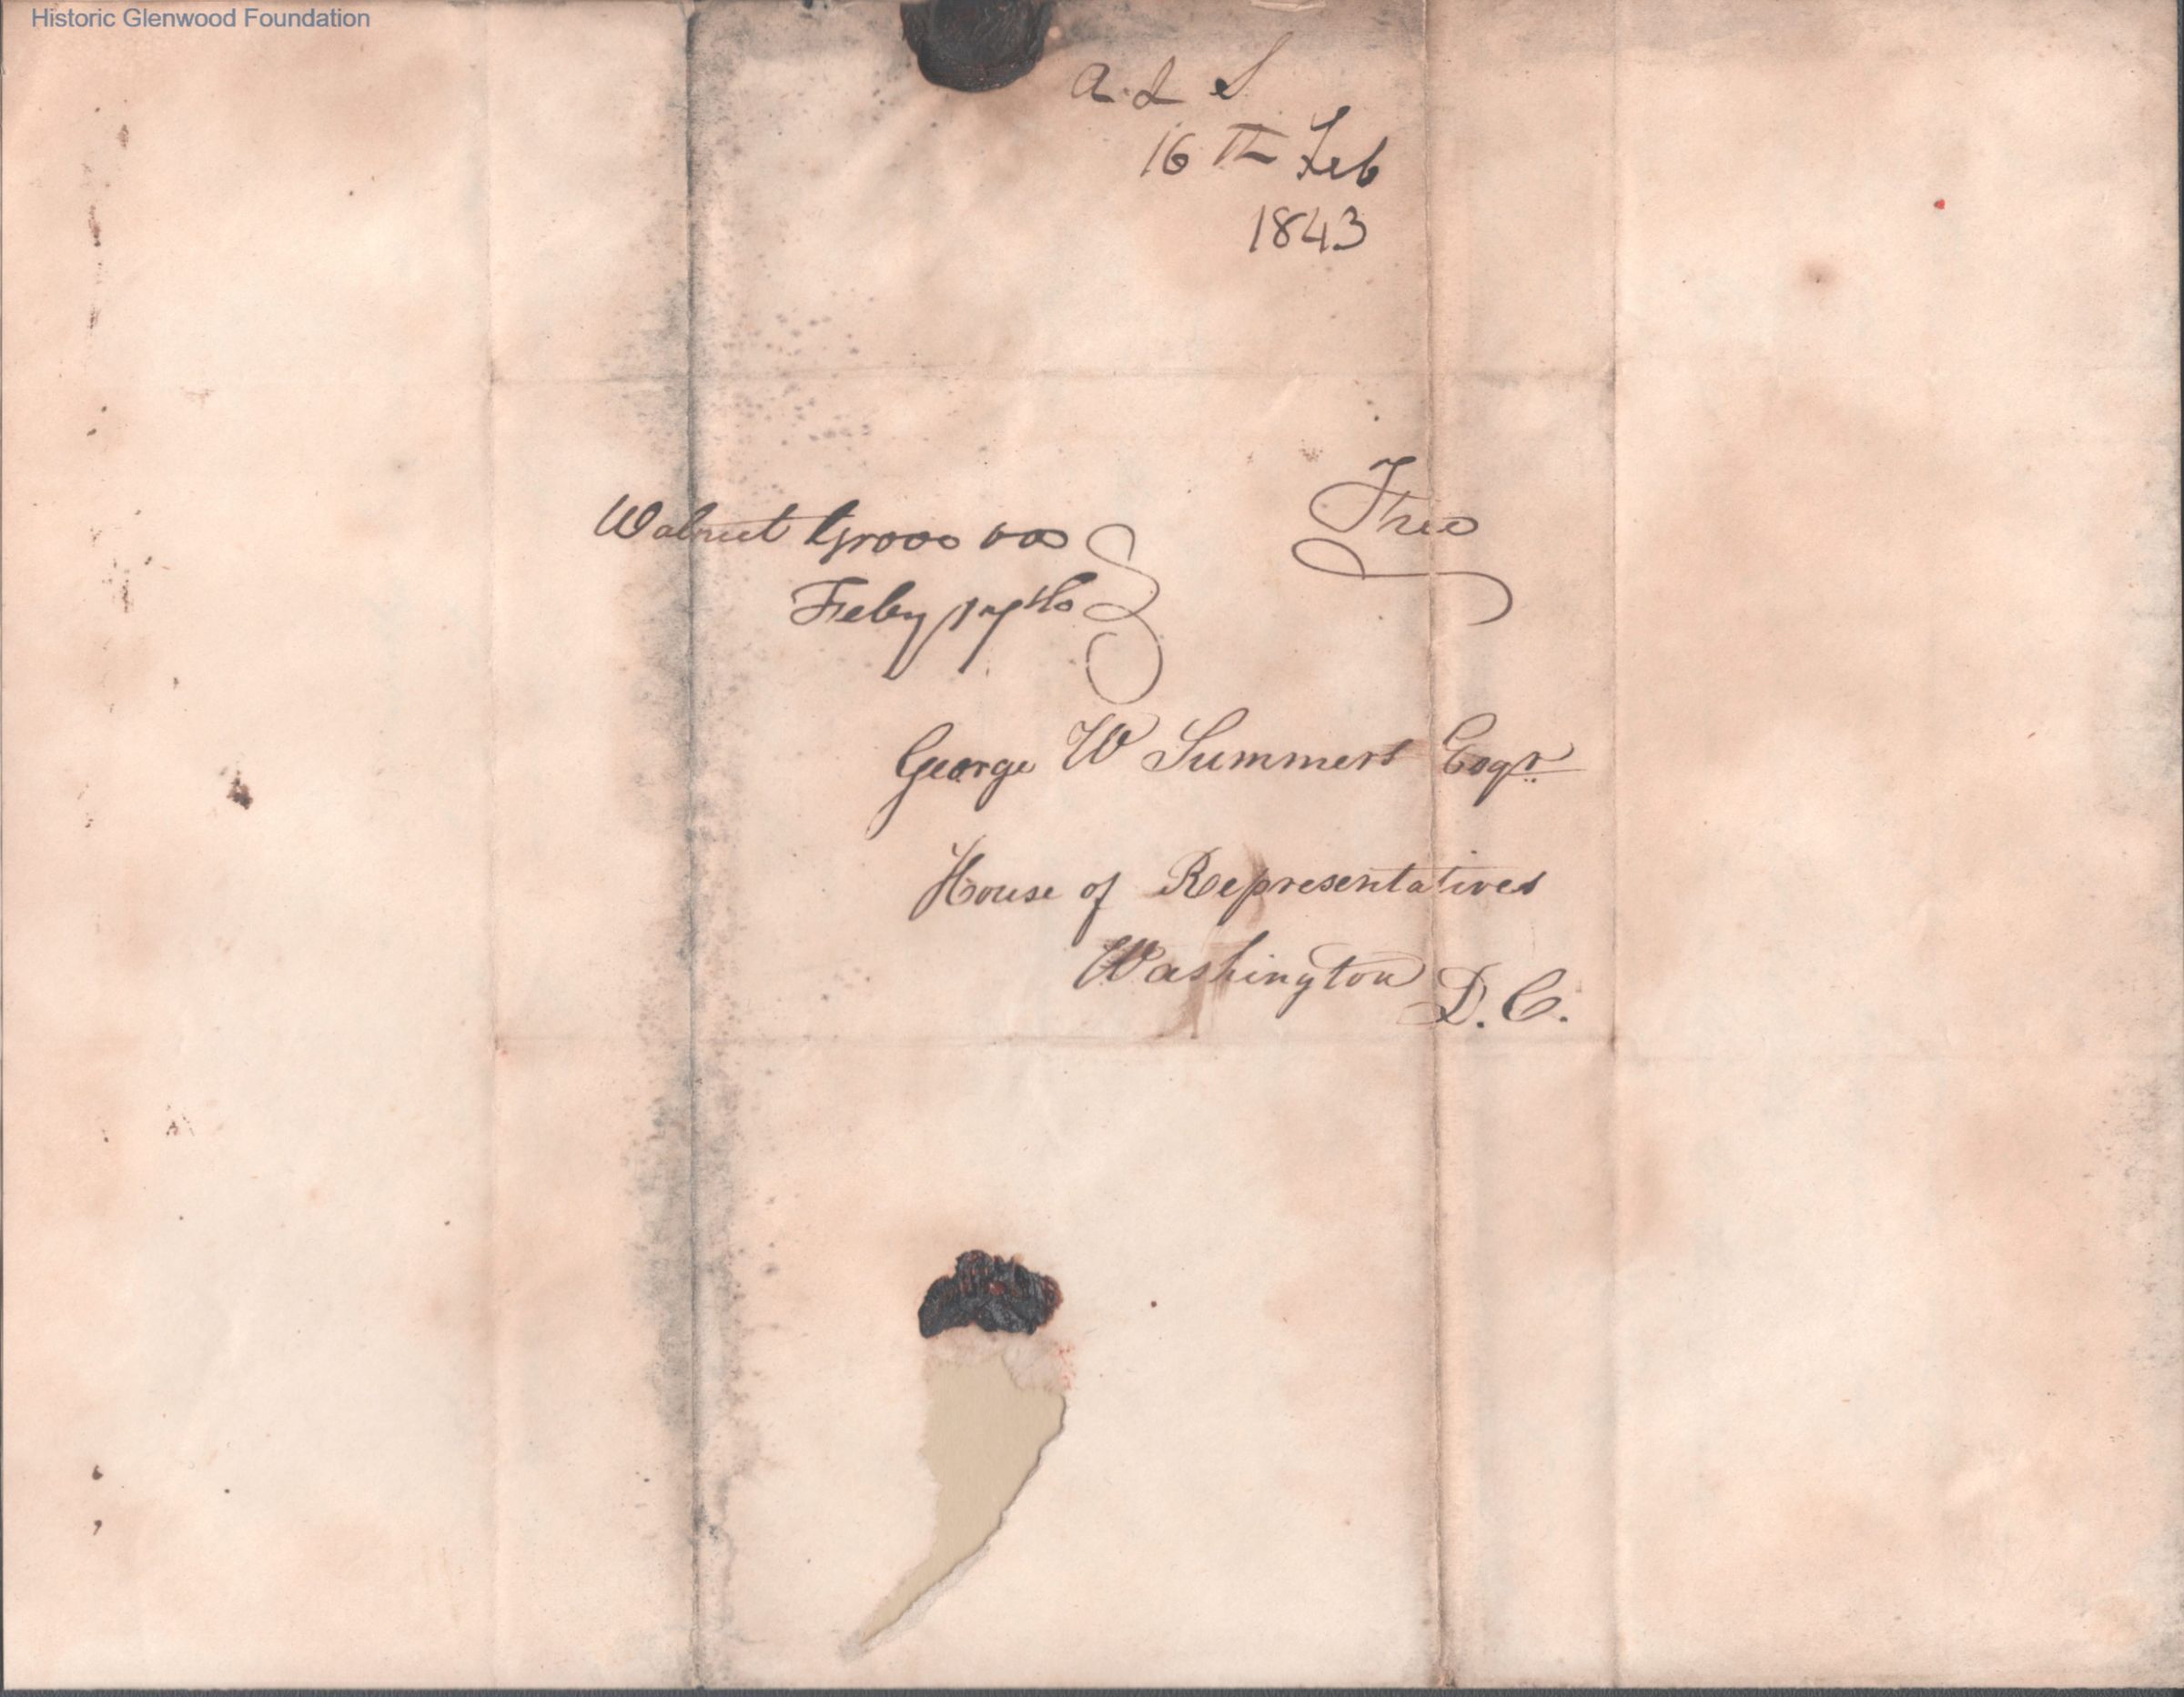 Historic Glenwood Foundation
A. L S
16 Th Feb
1843
Walnut Grove va
Feby 17th
Free
George W Summers Esqr
House of Representatives
Washington D.C.